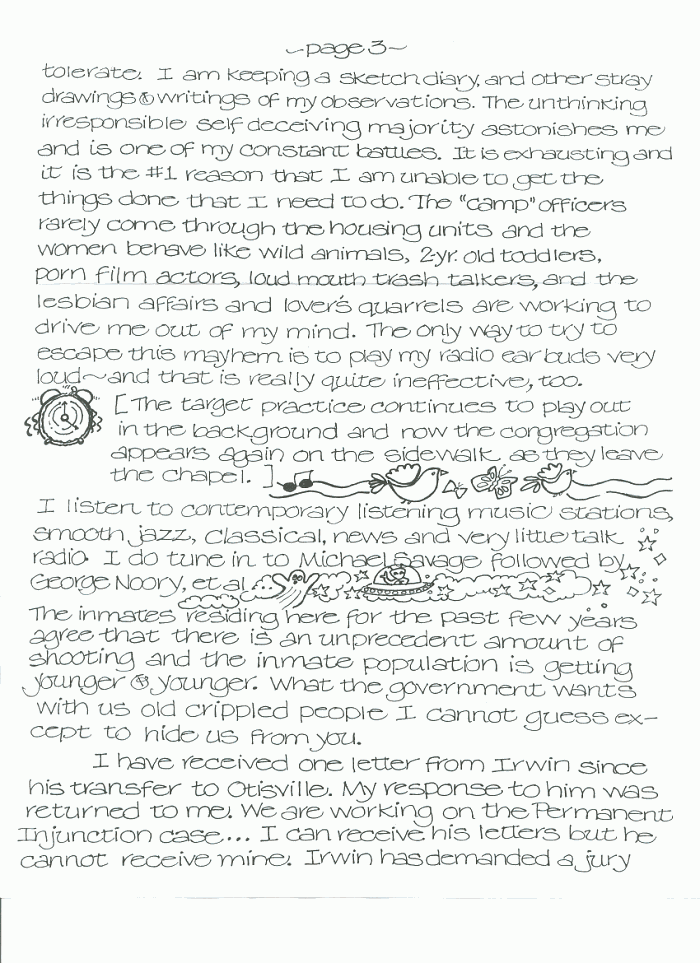 ~page 3~
tolerate. I am keeping a sketch diary, and other stray
drawings & writings of my observations. The unthinking
irresponsible self deceiving majority astonishes me
and is one of my constant battles. It is exhausting and
it is the #1 reason that I am unable to get the
things done that I need to do. The "camp" officers
rarely come through the housing units and the
women behave like wild animals, 2-yr. old toddlers,
porn film actors, loud mouth trash talkers, and the
lesbian affairs and lover's quarrels are working to
drive me out of my mind. The only way to try to
escape this mayhem is to play my radio ear buds very
loud~and that is really quite ineffective, too.
[The target practice continues to play out
in the background and now the congregation
appears again on the sidewalk as they leave
the chapel.]
I listen to contemporary listening music stations,
smooth jazz, classical, news and very little talk
radio. I do tune in to Michael Savage followed by
George Noory, et al
The inmates residing here for the past few years
agree that there is an unprecedent amount of
shooting and the inmate population is getting
younger & younger. What the government wants
with us old crippled people I cannot guess ex-
cept to hide us from you.
I have received one letter from Irwin since
his transfer to Otisville. My response to him was
returned to me! We are working on the Permanent
Injunction case... I can receive his letters but he
cannot receive mine! Irwin has demanded a jury